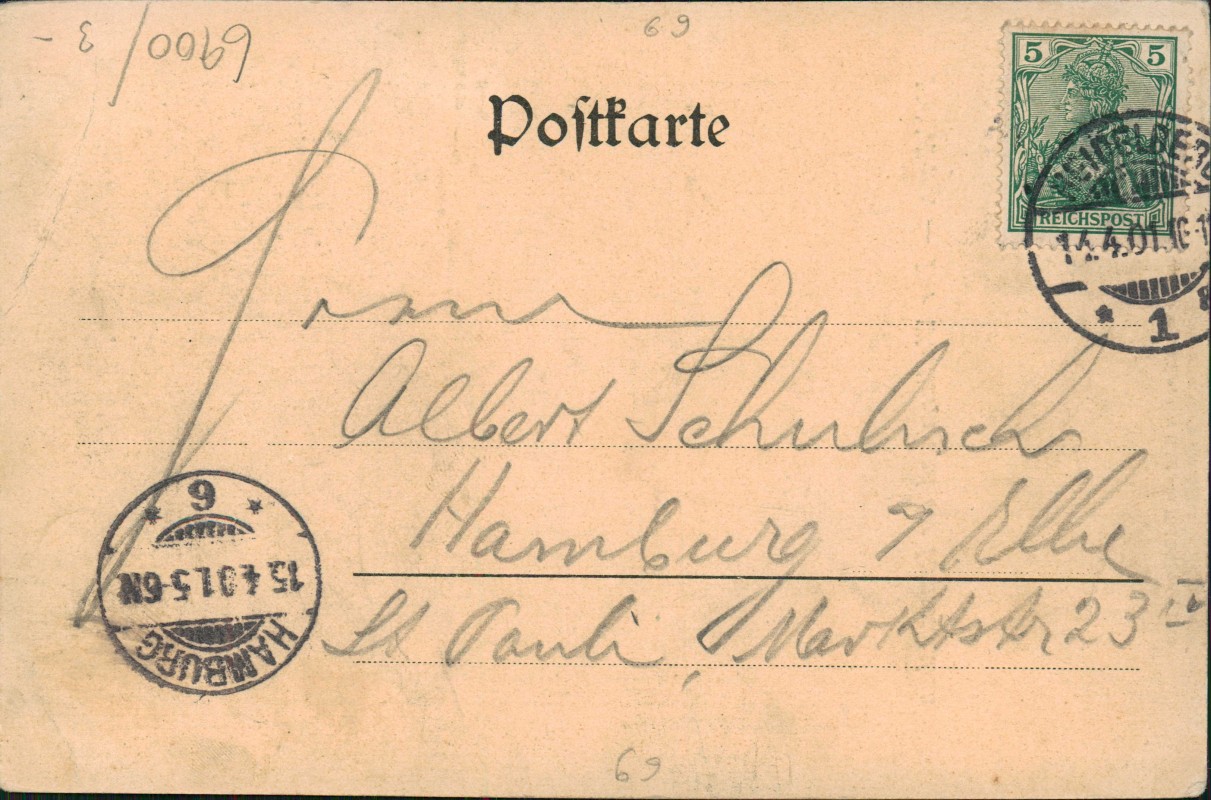 6900/3-
69
Postkarte
5 5
REICHSPOST
HEIDELBERG
14.4.01.10-11
* 1
Albert
Hamburg a/ Elbe
St Pauli, Marktstr 23 IV
HAMBURG
15.4.01.5-6N
* 6 *
69